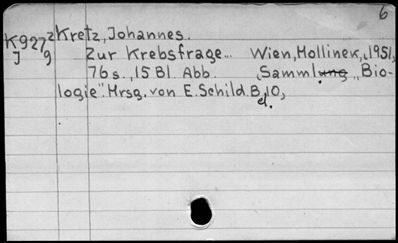 6
K927z Kretz, Johannes.
J 9 Zur Krebsfrage... Wien, Hollinek, 1951,
76 s., 15 Bl. Abb. (Sammlung „Bio-
logie". Hrsg. von E. Schild. Bd. 10,